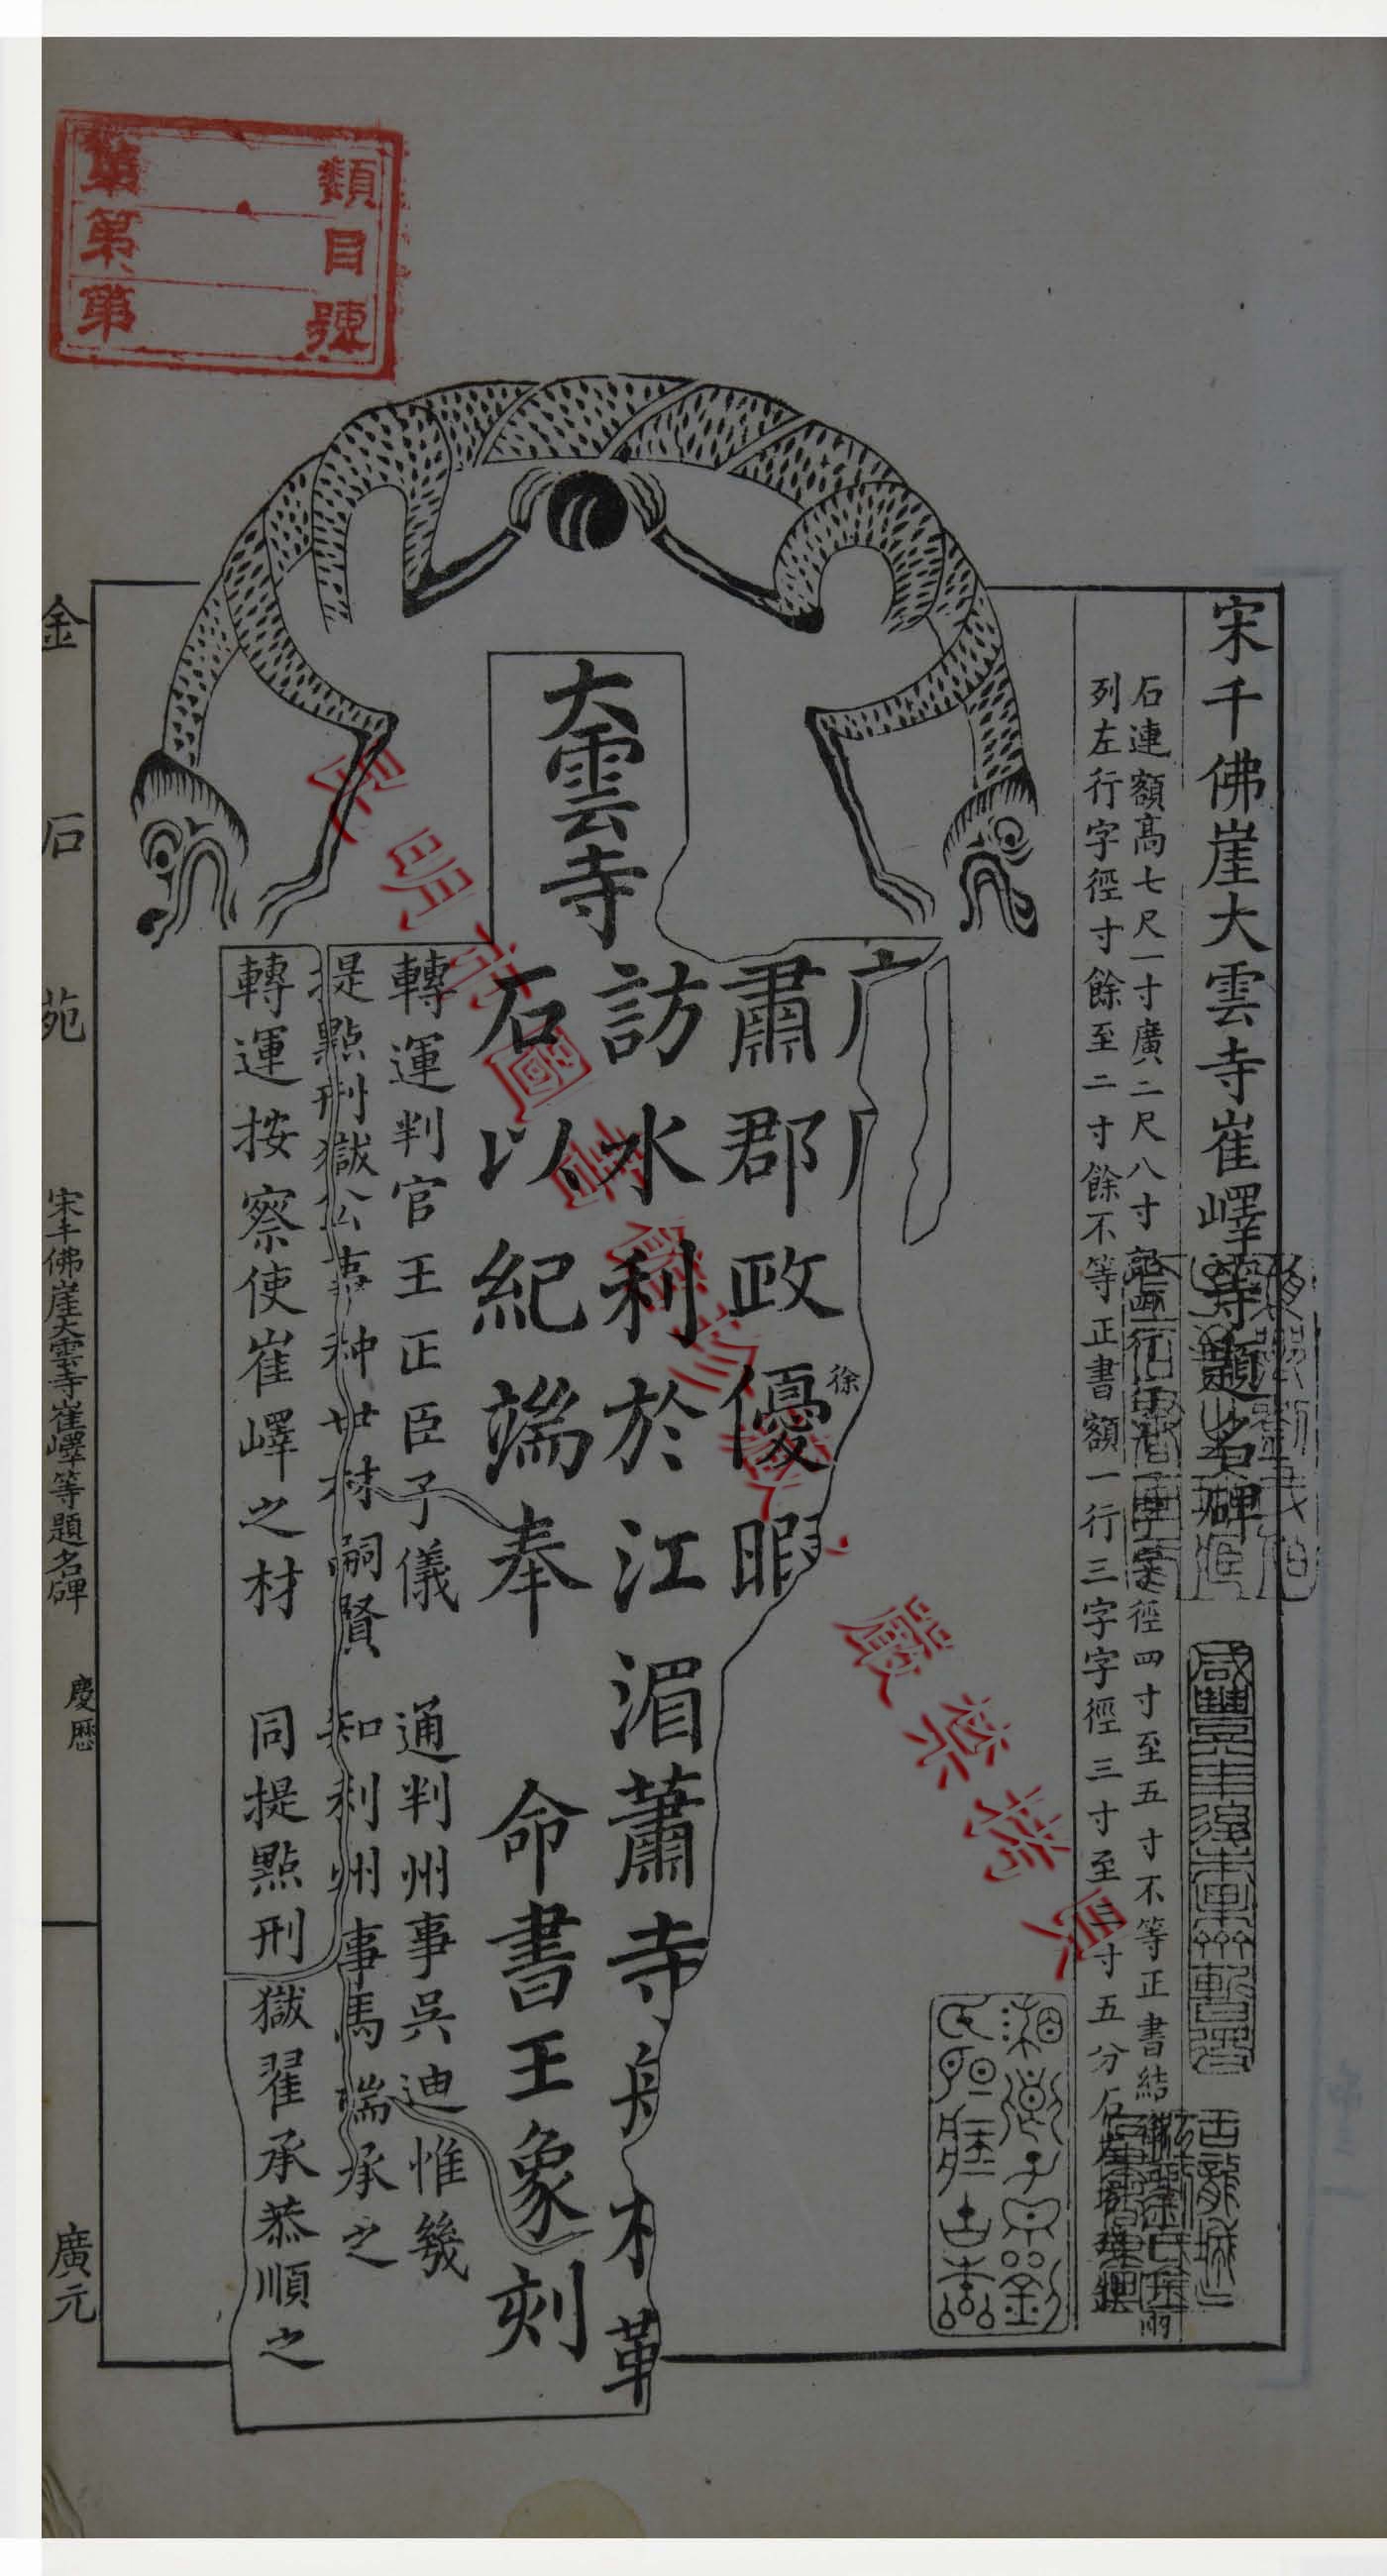 宋千佛崖大雲寺崔嶧等題名碑
石連額高七尺一寸廣二尺八寸記四行行字徑四寸至五寸不等正書結
列左行字徑寸餘至二寸餘不等正書額一行三字字徑三寸至三寸五分石
大雲寺
肅郡政優暇
徐
訪水利於江湄蕭寺舟木革
石以紀端奉 命書王象刻
轉運判官王正臣子儀 通判州事吳迪惟幾
提點刑獄公事种世材嗣賢 知利州事馬端承之
轉運按察使崔嶧之材 同提點刑獄翟承恭順之
金石苑
宋千佛崖大雲寺崔嶧等題名碑 慶歷
廣元
類
目
號
第
第
昆明市圖書館
嚴禁拷貝